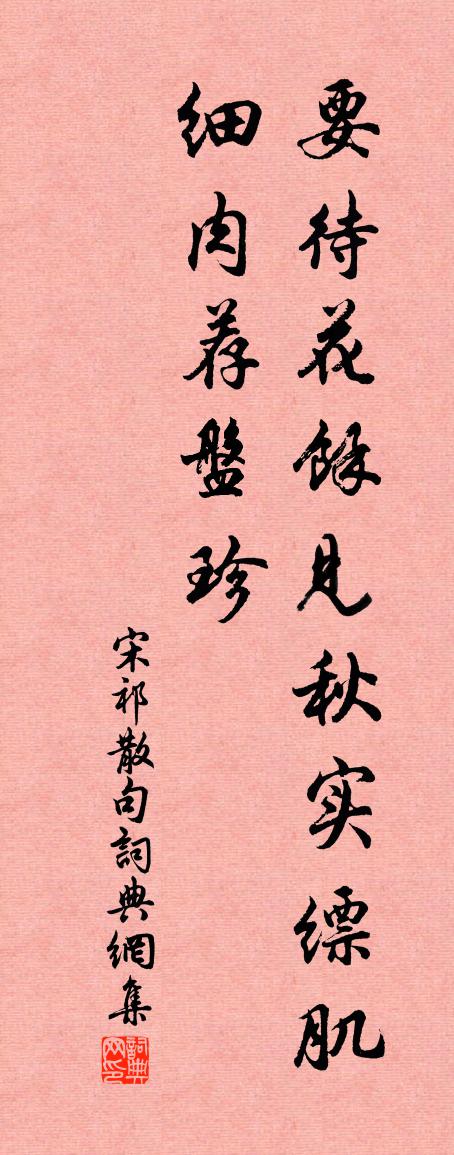 要待花餘見秋实缥肌
细肉荐盤珍
宋祁散句詞典網集
詞典网印